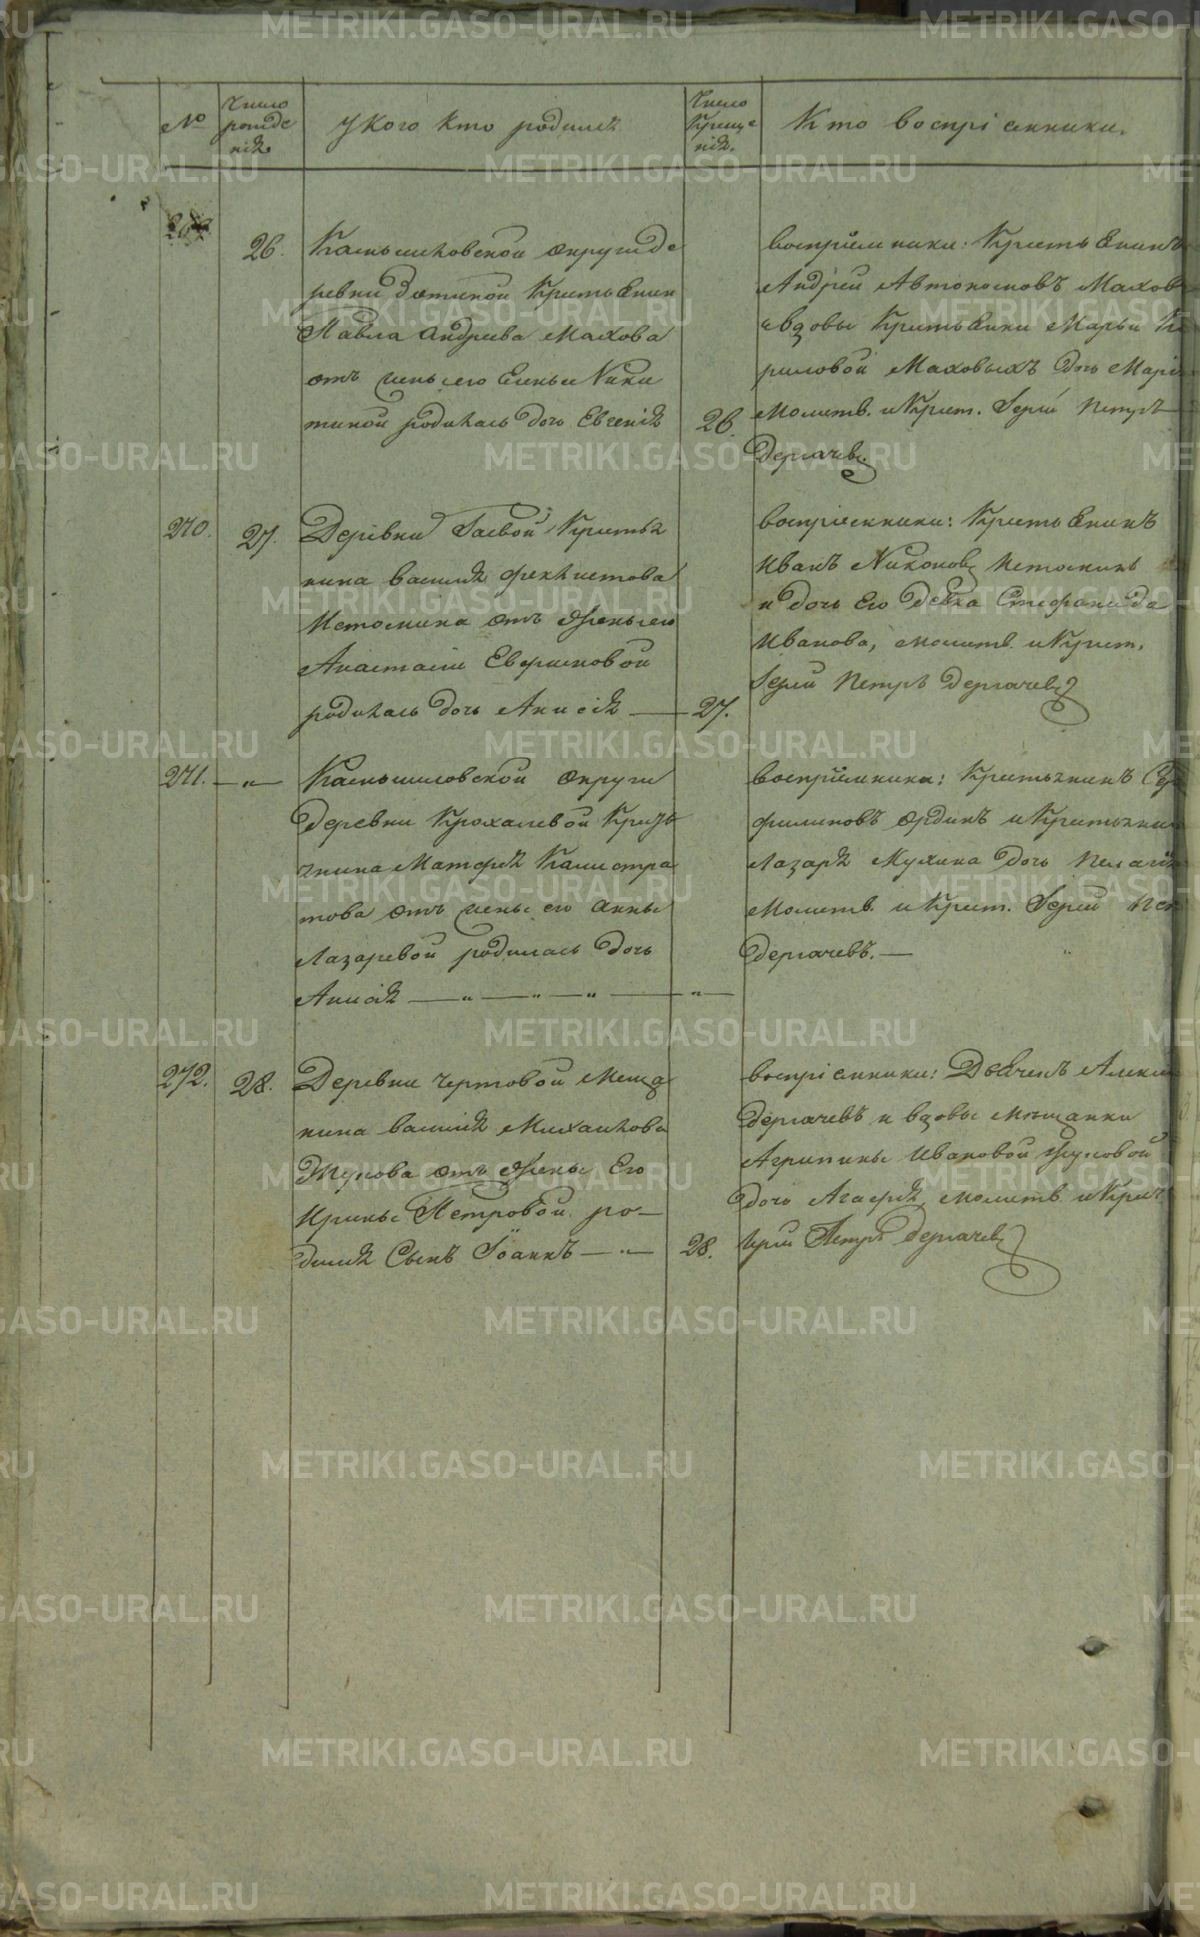 METRIKI.GASO-URAL.RU
№
Число рожде нія.
У кого кто родился
Число Креще нія.
Кто воспріемники.
26.
Камышловской округи де
ревни Крестьянин
Павла Андреева Махова
отъ жены его Елены Ники
тиной родилась дочь Евгенія
26.
воспріемники: Крестьянинъ
Андрей Автономовъ Махов
и вдовы Крестьянки Марьи Ки
риловой Маховыхъ дочь Марія
Молитв. и Крест. Іерей Петръ
Дергачевъ.
270.
27.
Деревни Гаевой Крестья
нина Василья Феклистова
Истомина отъ жены его
Анастасіи Евфимовой
родилась дочь Анисія
27.
воспріемники: Крестьянинъ
Иванъ Никоновъ Истоминъ
и дочь Его девка Стефанида
Иванова, молитв. и Крест.
Іерей Петръ Дергачевъ
271. — „ —
Камышловской округи
Деревни Крохалевой Кресть
янина Матфея Калистра
това отъ жены его Анны
Лазаревой родилась дочь
Анисія — „ — „ — „ — „ —
воспріемники: Крестьянинъ
филиповъ Ординъ и Крестьянина
Лазаря Мухина дочь Пелагія
Молитв. и Крест. Іерей Пет
Дергачевъ. —
272.
28.
Деревни Чертовой Меща
нина Василья Михайлова
Жукова отъ жены Его
Ирины Петровой ро—
дился Сынъ Іоаннъ — „ —
28.
воспріемники: Дьячекъ Алекс
Дергачевъ и вдовы мещанки
Агрипины Ивановой Жуковой
дочь Агафія, молитв. и Крест
Іерей Петръ Дергачевъ